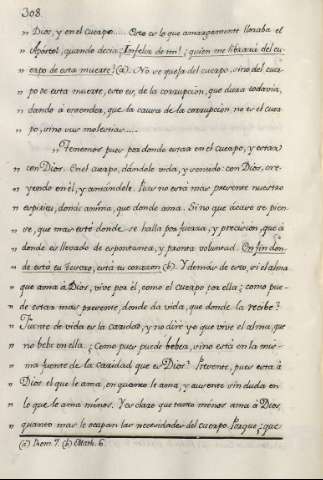 308.
" Dios, y en el cuerpo..... Esto es lo que amargamente lloraba el
" Apóstol, quando decia: ¡Infeliz de mí! ¿quien me librará del cu-
" erpo de esta muerte? (a). No se queja del cuerpo, sino del cuer-
" po de esta muerte, esto es, de la corrupcion, que dura todavia,
" dando á entender, que la causa de la corrupcion no es el cuer-
" po, sino sus molestias.....
" Tenemos pues por donde estar en el cuerpo, y estar
" con Dios. En el cuerpo, dándole vida, y siendo con Dios, cre-
" yendo en él, y amándole. Pues no está mas presente nuestro
" espíritu, donde anima, que donde ama. Si no que acaso se pien-
" se, que mas esté donde se halla por fuerza, y precision, que á
" donde es llevado de espontanea, y pronta voluntad. En fin don-
" de está tu tesoro, está tu corazon (b). Y demás de esto, si el alma
" que ama á Dios, vive por él, como el cuerpo por ella; ¿como pue-
" de estar mas presente, donde da vida, que donde la recibe?
" Fuente de vida es la caridad, y no diré yo que vive el alma, que
" no bebe en ella. ¿Como pues puede beber, sino está en la mis-
" ma fuente de la caridad que es Dios? Presente, pues está á
" Dios el que le ama, en quanto le ama, y ausente sin duda en
" lo que le ama menos. Y es claro que tanto menos ama á Dios,
" quanto mas le ocupan las necesidades del cuerpo. Porque ¿que
(a) Rom. 7. (b) Math. 6.